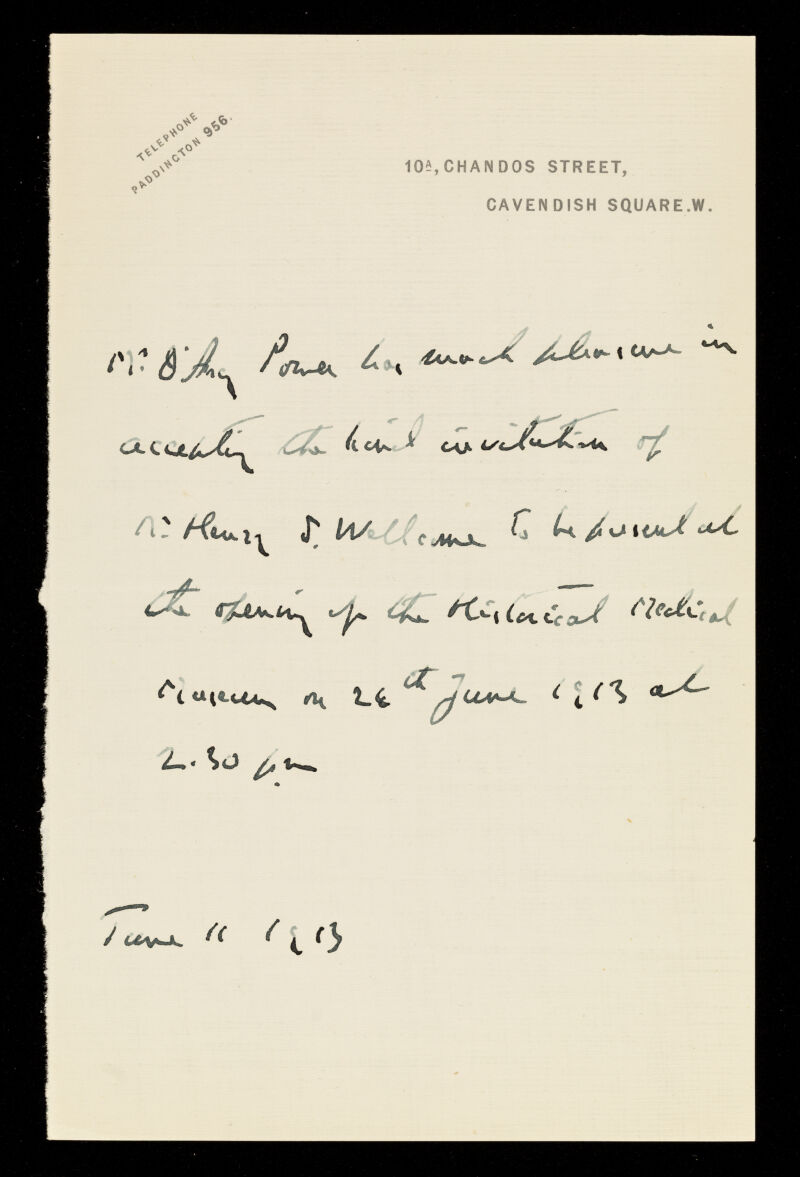 TELEPHONE
PADDINGTON 956.
10A, CHANDOS STREET,
CAVENDISH SQUARE. W.
Mr. D'Arcy Power has much pleasure in
accepting the kind invitation of
Mr. Henry S. Wellcome to be present at
the opening of the Historical Medical
Museum on 24th June 1913 at
2.30 pm
June 11 1913